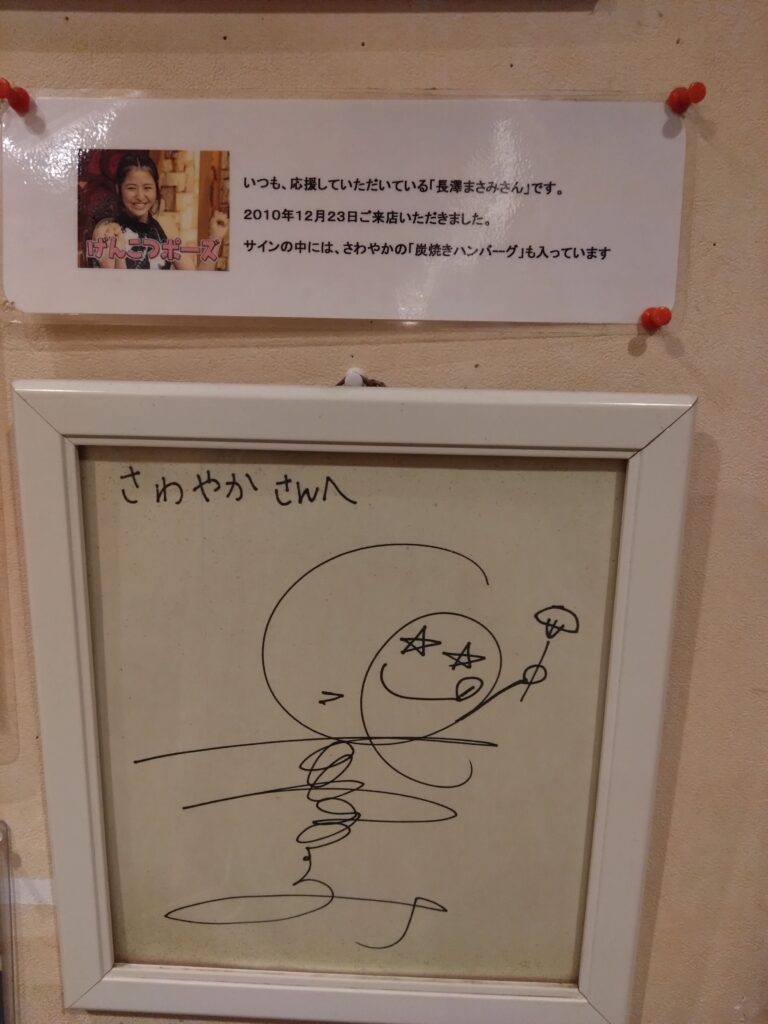 いつも、応援していただいている「長澤まさみさん」です。
2010年12月23日ご来店いただきました。
サインの中には、さわやかの「炭焼きハンバーグ」も入っています
げんこつポーズ
さわやか さんへ